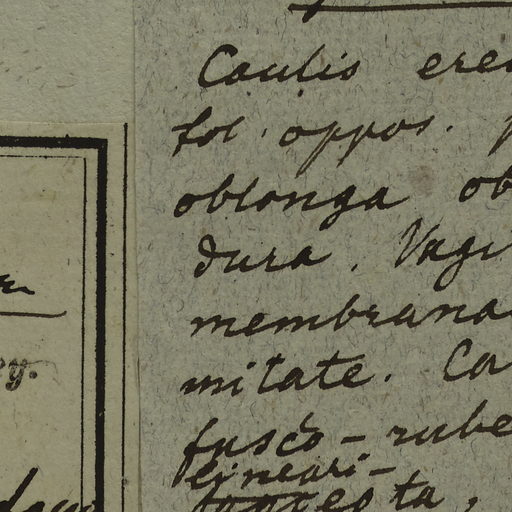 Caulis ere
fol. oppos. p
oblonga ob
dura. Vagi
membrana
mitate. Ca
fusco-rube
lineari-
ta,
ey.